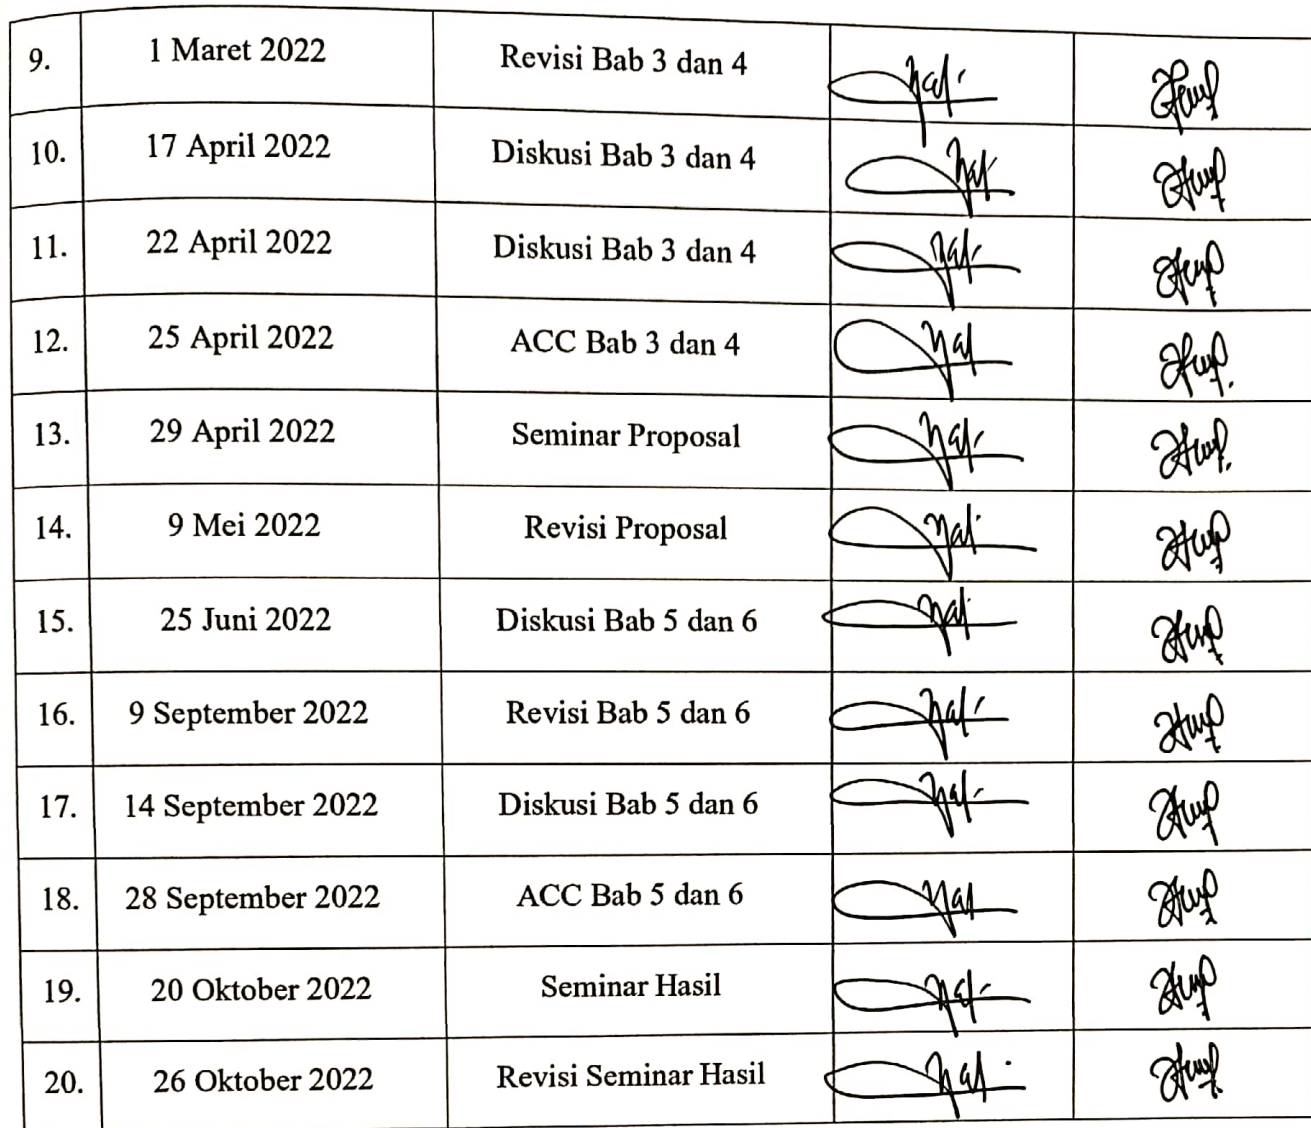 9. 1 Maret 2022 Revisi Bab 3 dan 4
10. 17 April 2022 Diskusi Bab 3 dan 4
11. 22 April 2022 Diskusi Bab 3 dan 4
12. 25 April 2022 ACC Bab 3 dan 4
13. 29 April 2022 Seminar Proposal
14. 9 Mei 2022 Revisi Proposal
15. 25 Juni 2022 Diskusi Bab 5 dan 6
16. 9 September 2022 Revisi Bab 5 dan 6
17. 14 September 2022 Diskusi Bab 5 dan 6
18. 28 September 2022 ACC Bab 5 dan 6
19. 20 Oktober 2022 Seminar Hasil
20. 26 Oktober 2022 Revisi Seminar Hasil